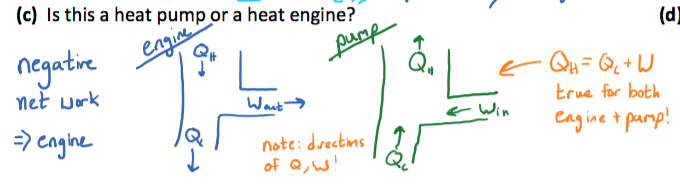 (c) Is this a heat pump or a heat engine?
(d)
negative
net work
⇒ engine
engine
Q_H
W out →
Q_c
note: directions
of Q, W!
pump
Q_H
← Win
Q_c
← Q_H = Q_c + W
true for both
engine + pump!